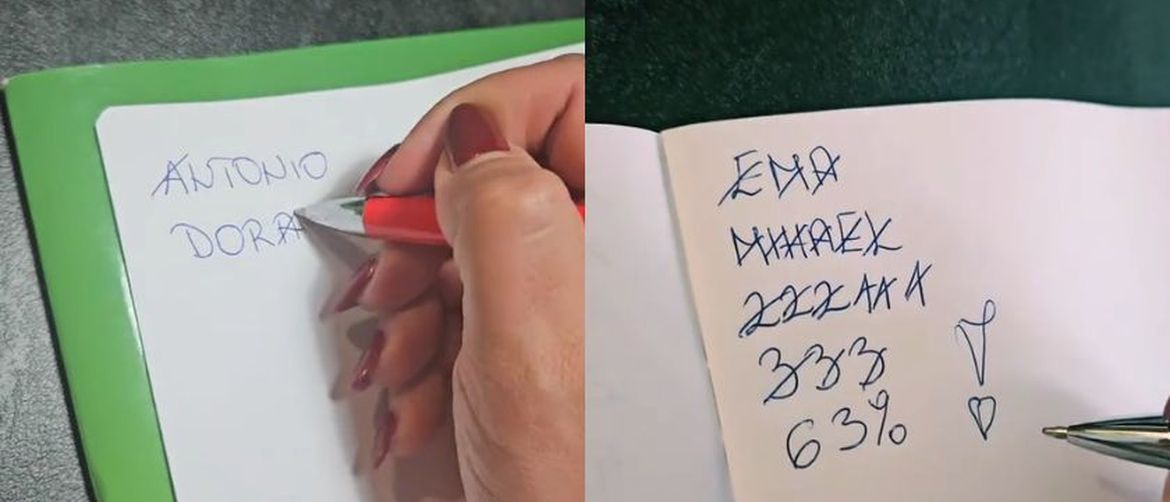 ANTONIO
DORA
EMA
MIHAEL
222AAA
333
63% !